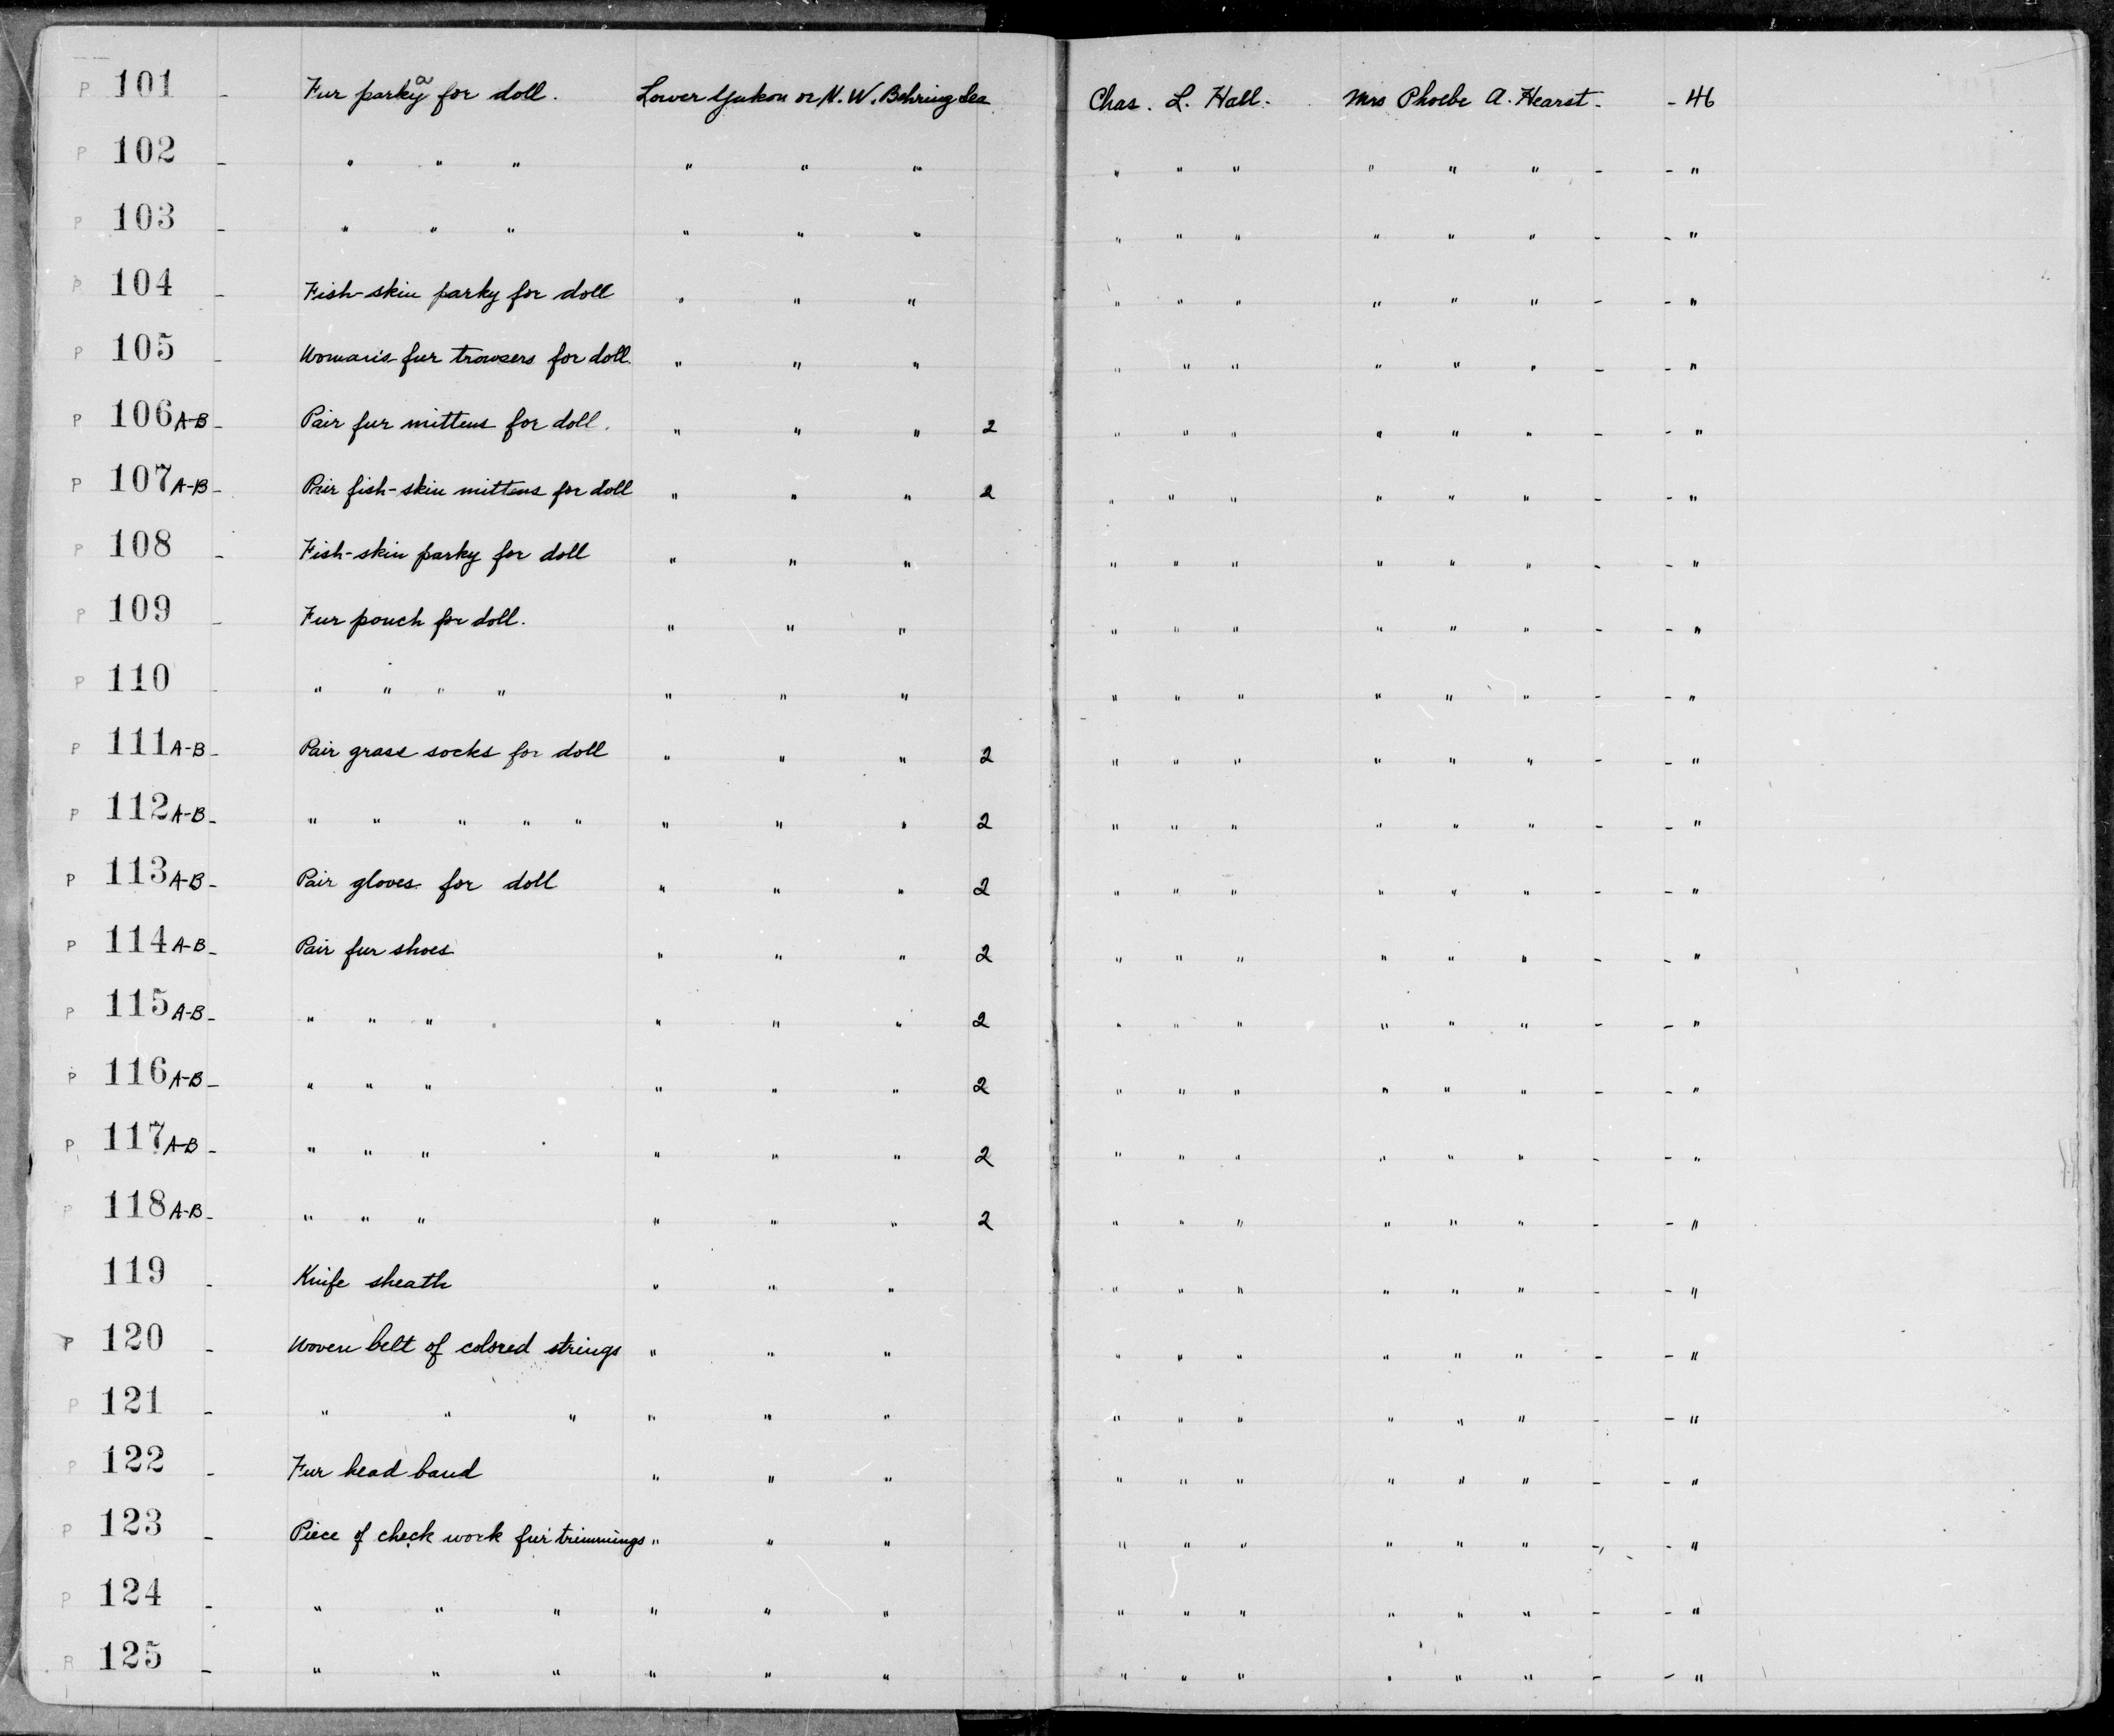 P 101 - Fur parky a for doll. Lower Yukon or N. W. Behring Sea Chas. L. Hall. Mrs Phoebe A. Hearst - - 46
P 102 - " " " " " " " " " " " " - - "
P 103 - " " " " " " " " " " " " - - "
P 104 - Fish-skin parky for doll " " " " " " " " " - - "
P 105 - Woman's fur trowsers for doll. " " " " " " " " " - - "
P 106 A-B - Pair fur mittens for doll. " " " 2 " " " " " " - - "
P 107 A-B - Pair fish-skin mittens for doll " " " 2 " " " " " " - - "
P 108 - Fish-skin parky for doll " " " " " " " " " - - "
P 109 - Fur pouch for doll. " " " " " " " " " - - "
P 110 - " " " " " " " " " " " " " - - "
P 111 A-B - Pair grass socks for doll " " " 2 " " " " " " - - "
P 112 A-B - " " " " " " " " 2 " " " " " " - - "
P 113 A-B - Pair gloves for doll " " " 2 " " " " " " - - "
P 114 A-B - Pair fur shoes " " " 2 " " " " " " - - "
P 115 A-B - " " " " " " 2 " " " " " " - - "
P 116 A-B - " " " " " " 2 " " " " " " - - "
P 117 A-B - " " " " " " 2 " " " " " " - - "
P 118 A-B - " " " " " " 2 " " " " " " - - "
119 - Knife sheath " " " " " " " " " - - "
P 120 - Woven belt of colored strings " " " " " " " " " - - "
P 121 - " " " " " " " " " " " " - - "
P 122 - Fur head band " " " " " " " " " - - "
P 123 - Piece of check work fur trimmings " " " " " " " " " - - "
P 124 - " " " " " " " " " " " " - - "
P 125 - " " " " " " " " " " " " - - "